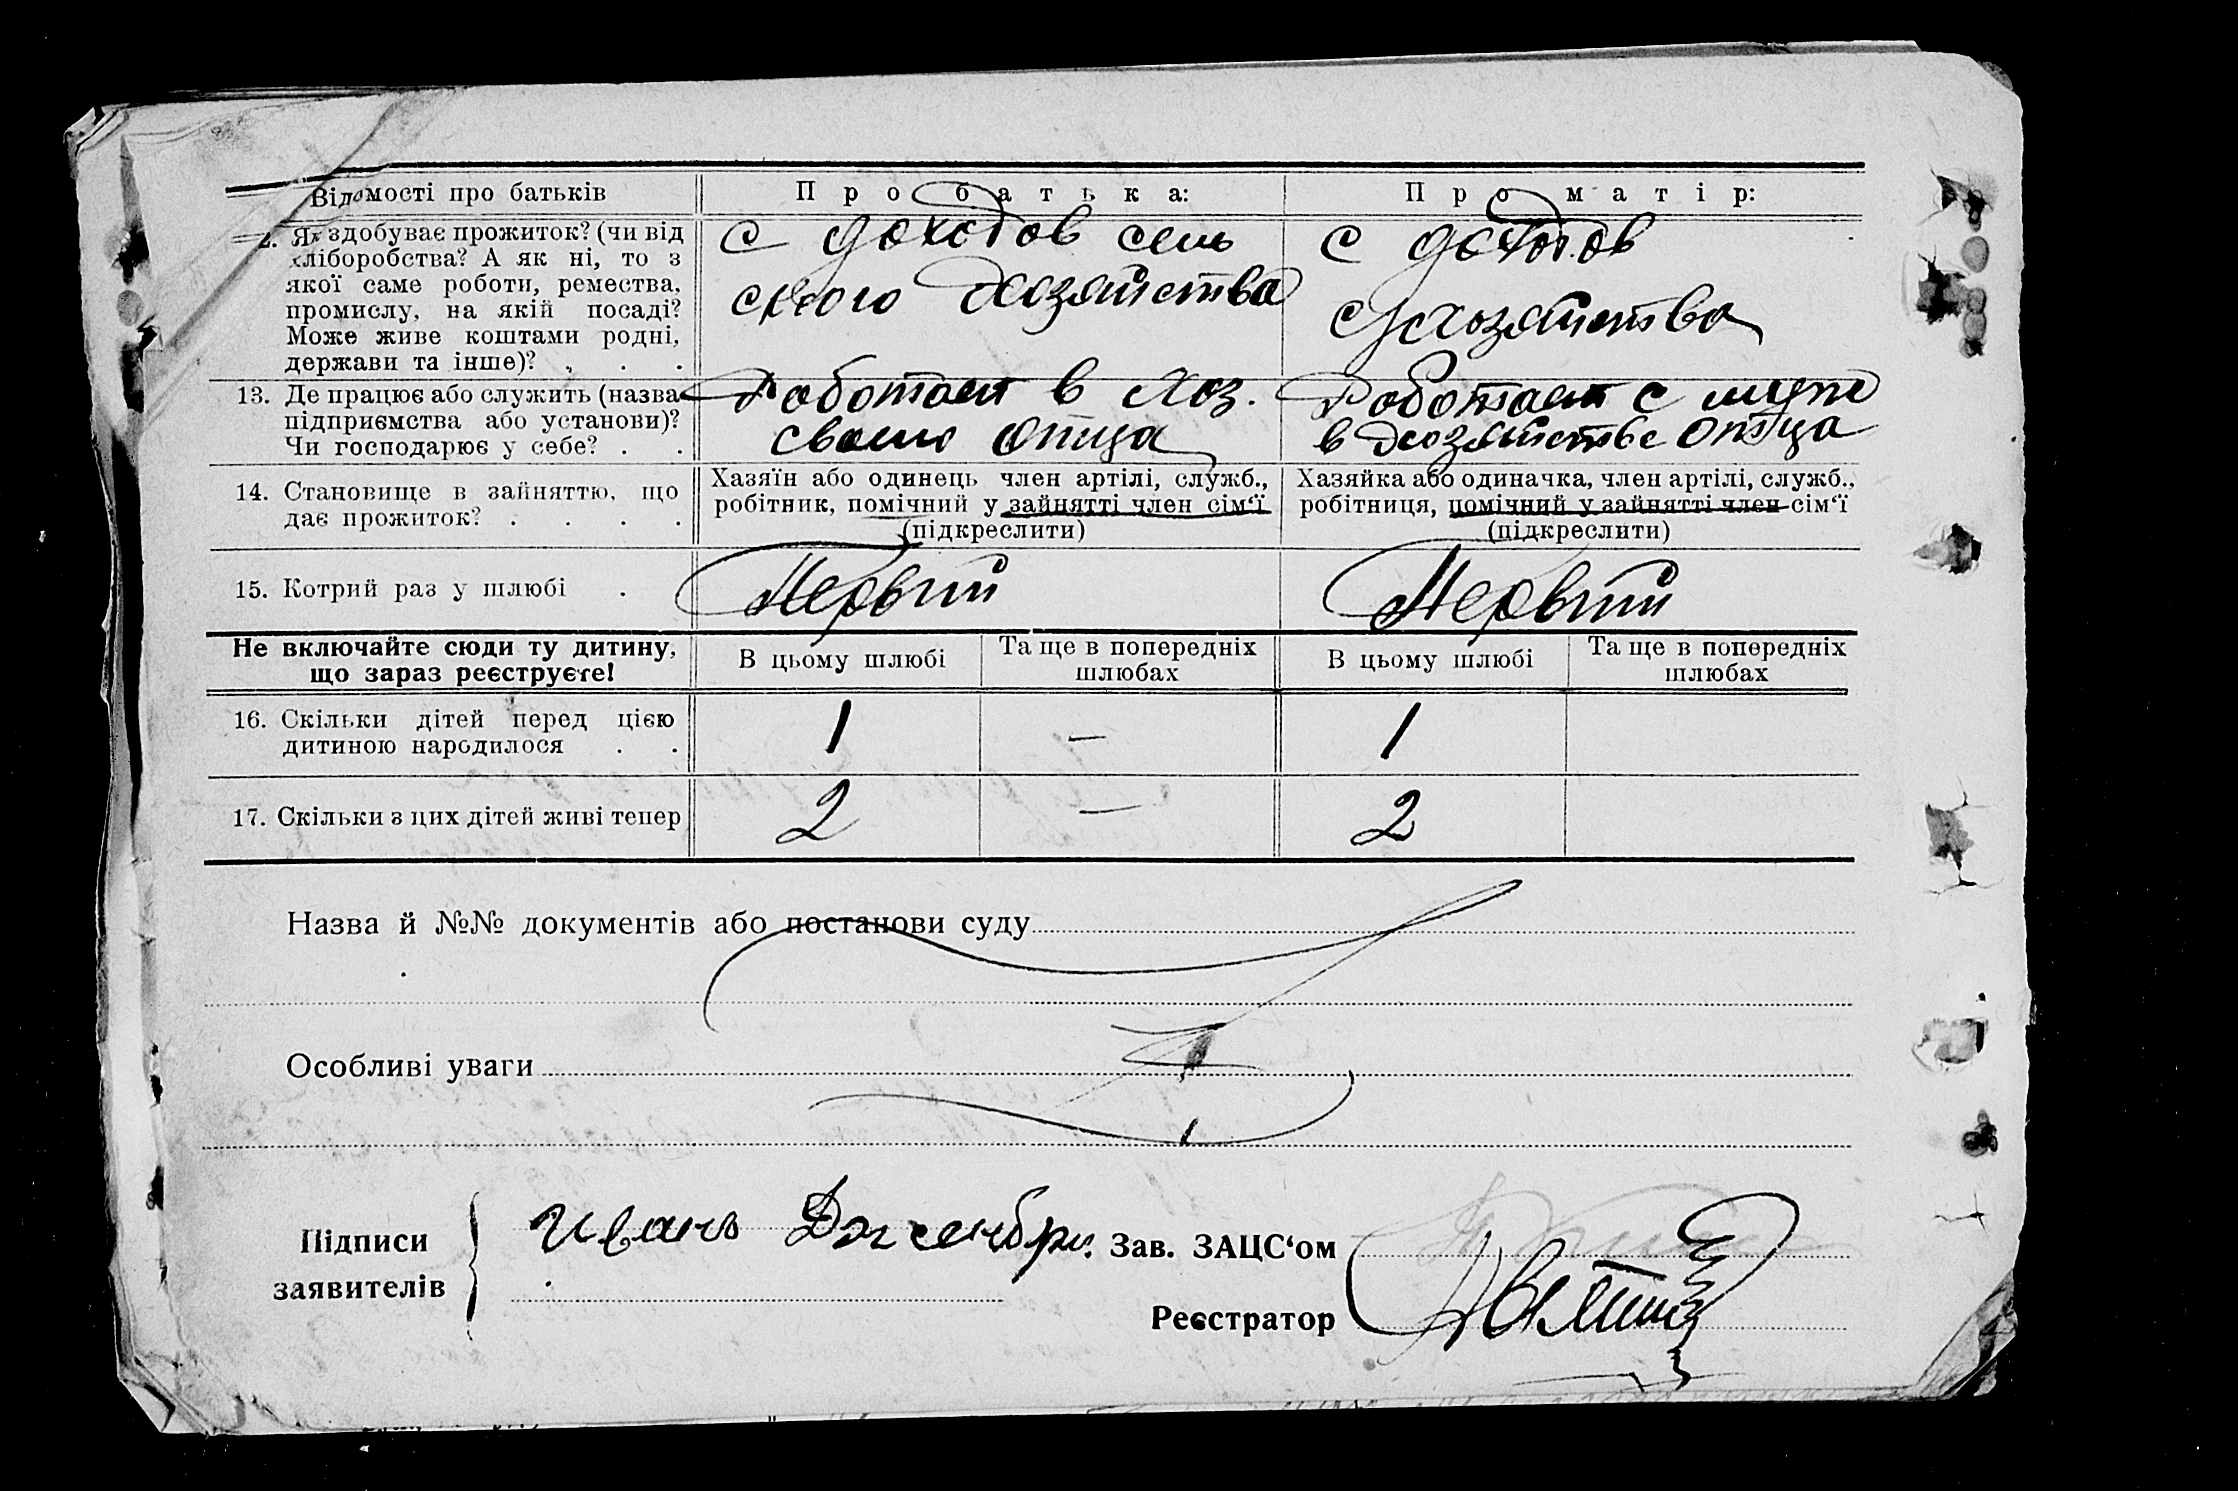 Відомості про батьків
Про батька:
Про матір:
2. Як здобуває прожиток? (чи від
хліборобства? А як ні, то з
якої саме роботи, ремества,
промислу, на якій посаді?
Може живе коштами родні,
держави та інше)? . . .
с доходов сель
ского хозяйства
с доходов
с/хозяйства
13. Де працює або служить (назва
підприємства або установи)?
Чи господарює у себе? . .
Работает в хоз.
своего отца
Работает с муже
в хозяйстве отца
14. Становище в зайняттю, що
дає прожиток? . . . .
Хазяїн або одинець член артілі, служб.,
робітник, помічний у зайнятті член сім‘ї
(підкреслити)
Хазяйка або одиначка, член артілі, служб.,
робітниця, помічний у зайнятті член сім‘ї
(підкреслити)
15. Котрий раз у шлюбі .
Первый
Первый
Не включайте сюди ту дитину,
що зараз реєструєте!
В цьому шлюбі
Та ще в попередніх
шлюбах
В цьому шлюбі
Та ще в попередніх
шлюбах
16. Скільки дітей перед цією
дитиною народилося . .
1
—
1
17. Скільки з цих дітей живі тепер
2
—
2
Назва й №№ документів або постанови суду
Особливі уваги
Підписи
заявителів
Иванъ
Зав. ЗАЦС‘ом
Реєстратор